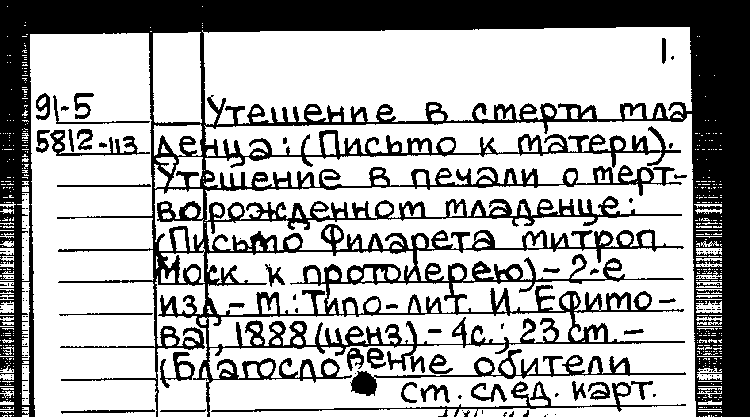 1.
91-5 Утешение в смерти мла-
5812-113 денца: (Письмо к матери).
Утешение в печали о мерт-
ворожденном младенце:
(Письмо Филарета митроп.
Моск. к протоиерею) - 2-е
изд. - М.: Типо-лит. И. Ефимо-
ва, 1888 (ценз). - 4с.; 23 см. -
(Благословение обители
см. след. карт.